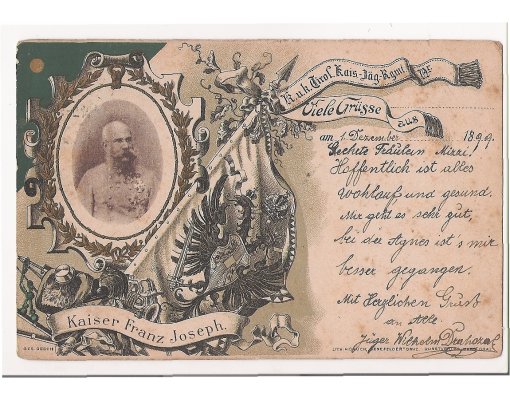 K.u.k. Tirol. Kais.-Jäg.-Rgmt N°
Viele Grüsse aus
am 1. Dezember 1899.
Geehrte Fräulein Mizzi!
Hoffentlich ist alles
wohlauf und gesund.
Mir geht es sehr gut,
bei der Agnes ist's mir
besser gegangen.
Mit Herzlichen Gruß
an Alle
Jäger Wilhelm
Kaiser Franz Joseph.
GES. GESCH.